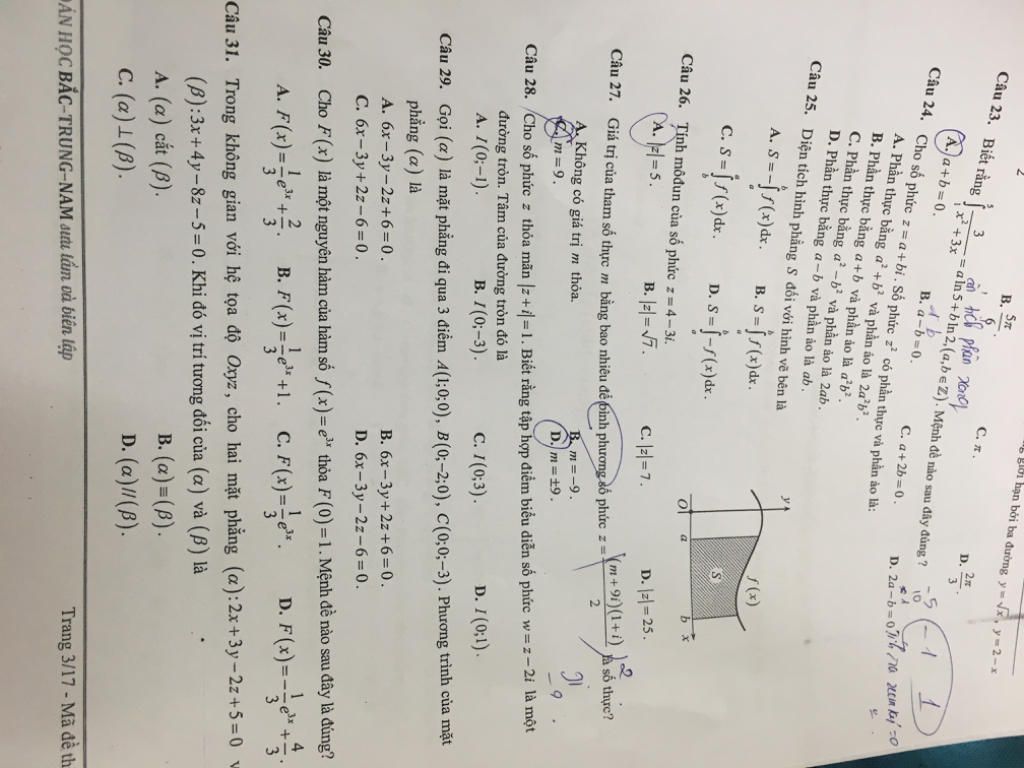 giới hạn bởi ba đường y = √x, y = 2 − x
B. 5π/6.
C. π.
D. 2π/3.
Câu 23. Biết rằng ∫₁⁵ 3/(x² + 3x) = a ln 5 + b ln 2, (a, b ∈ ℤ). Mệnh đề nào sau đây đúng?
A. a + b = 0.
B. a − b = 0.
C. a + 2b = 0.
D. 2a − b = 0
Câu 24. Cho số phức z = a + bi. Số phức z² có phần thực và phần ảo là:
A. Phần thực bằng a² + b² và phần ảo là 2a²b².
B. Phần thực bằng a + b và phần ảo là a²b².
C. Phần thực bằng a² − b² và phần ảo là 2ab.
D. Phần thực bằng a − b và phần ảo là ab.
Câu 25. Diện tích hình phẳng S đối với hình vẽ bên là
A. S = −∫ₐᵇ f(x)dx.
B. S = ∫ₐᵇ f(x)dx.
C. S = ∫ f(x)dx.
D. S = ∫ −f(x)dx.
y
f(x)
S
O a b x
Câu 26. Tính môđun của số phức z = 4 − 3i.
A. |z| = 5.
B. |z| = √7.
C. |z| = 7.
D. |z| = 25.
Câu 27. Giá trị của tham số thực m bằng bao nhiêu để bình phương số phức z = (m + 9i)(1 + i)/2 là số thực?
A. Không có giá trị m thỏa.
B. m = −9.
C. m = 9.
D. m = ±9.
Câu 28. Cho số phức z thỏa mãn |z + i| = 1. Biết rằng tập hợp điểm biểu diễn số phức w = z − 2i là một
đường tròn. Tâm của đường tròn đó là
A. I(0;−1).
B. I(0;−3).
C. I(0;3).
D. I(0;1).
Câu 29. Gọi (α) là mặt phẳng đi qua 3 điểm A(1;0;0), B(0;−2;0), C(0;0;−3). Phương trình của mặt
phẳng (α) là
A. 6x − 3y − 2z + 6 = 0.
B. 6x − 3y + 2z + 6 = 0.
C. 6x − 3y + 2z − 6 = 0.
D. 6x − 3y − 2z − 6 = 0.
Câu 30. Cho F(x) là một nguyên hàm của hàm số f(x) = e³ˣ thỏa F(0) = 1. Mệnh đề nào sau đây là đúng?
A. F(x) = 1/3 e³ˣ + 2/3.
B. F(x) = 1/3 e³ˣ + 1.
C. F(x) = 1/3 e³ˣ.
D. F(x) = −1/3 e³ˣ + 4/3.
Câu 31. Trong không gian với hệ tọa độ Oxyz, cho hai mặt phẳng (α): 2x + 3y − 2z + 5 = 0 v
(β): 3x + 4y − 8z − 5 = 0. Khi đó vị trí tương đối của (α) và (β) là
A. (α) cắt (β).
B. (α) ≡ (β).
C. (α) ⊥ (β).
D. (α) // (β).
OÁN HỌC BẮC-TRUNG-NAM sưu tầm và biên tập
Trang 3/17 - Mã đề th